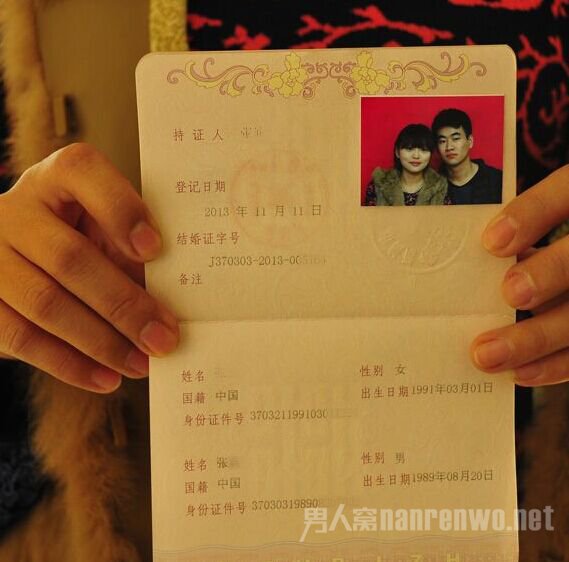 持证人
登记日期
2013 年 11 月 11 日
结婚证字号
J370303-2013-00
备注
姓名
性别 女
国籍 中国
出生日期 1991年03月01日
身份证件号 3703211991030
姓名 张
性别 男
国籍 中国
出生日期 1989年08月20日
身份证件号 37030319890
男人窝nanrenwo.net